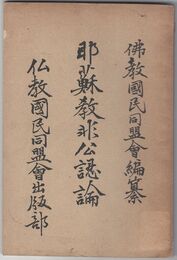 佛教國民同盟會編纂
耶蘇教非公認論
仏教國民同盟會出版部